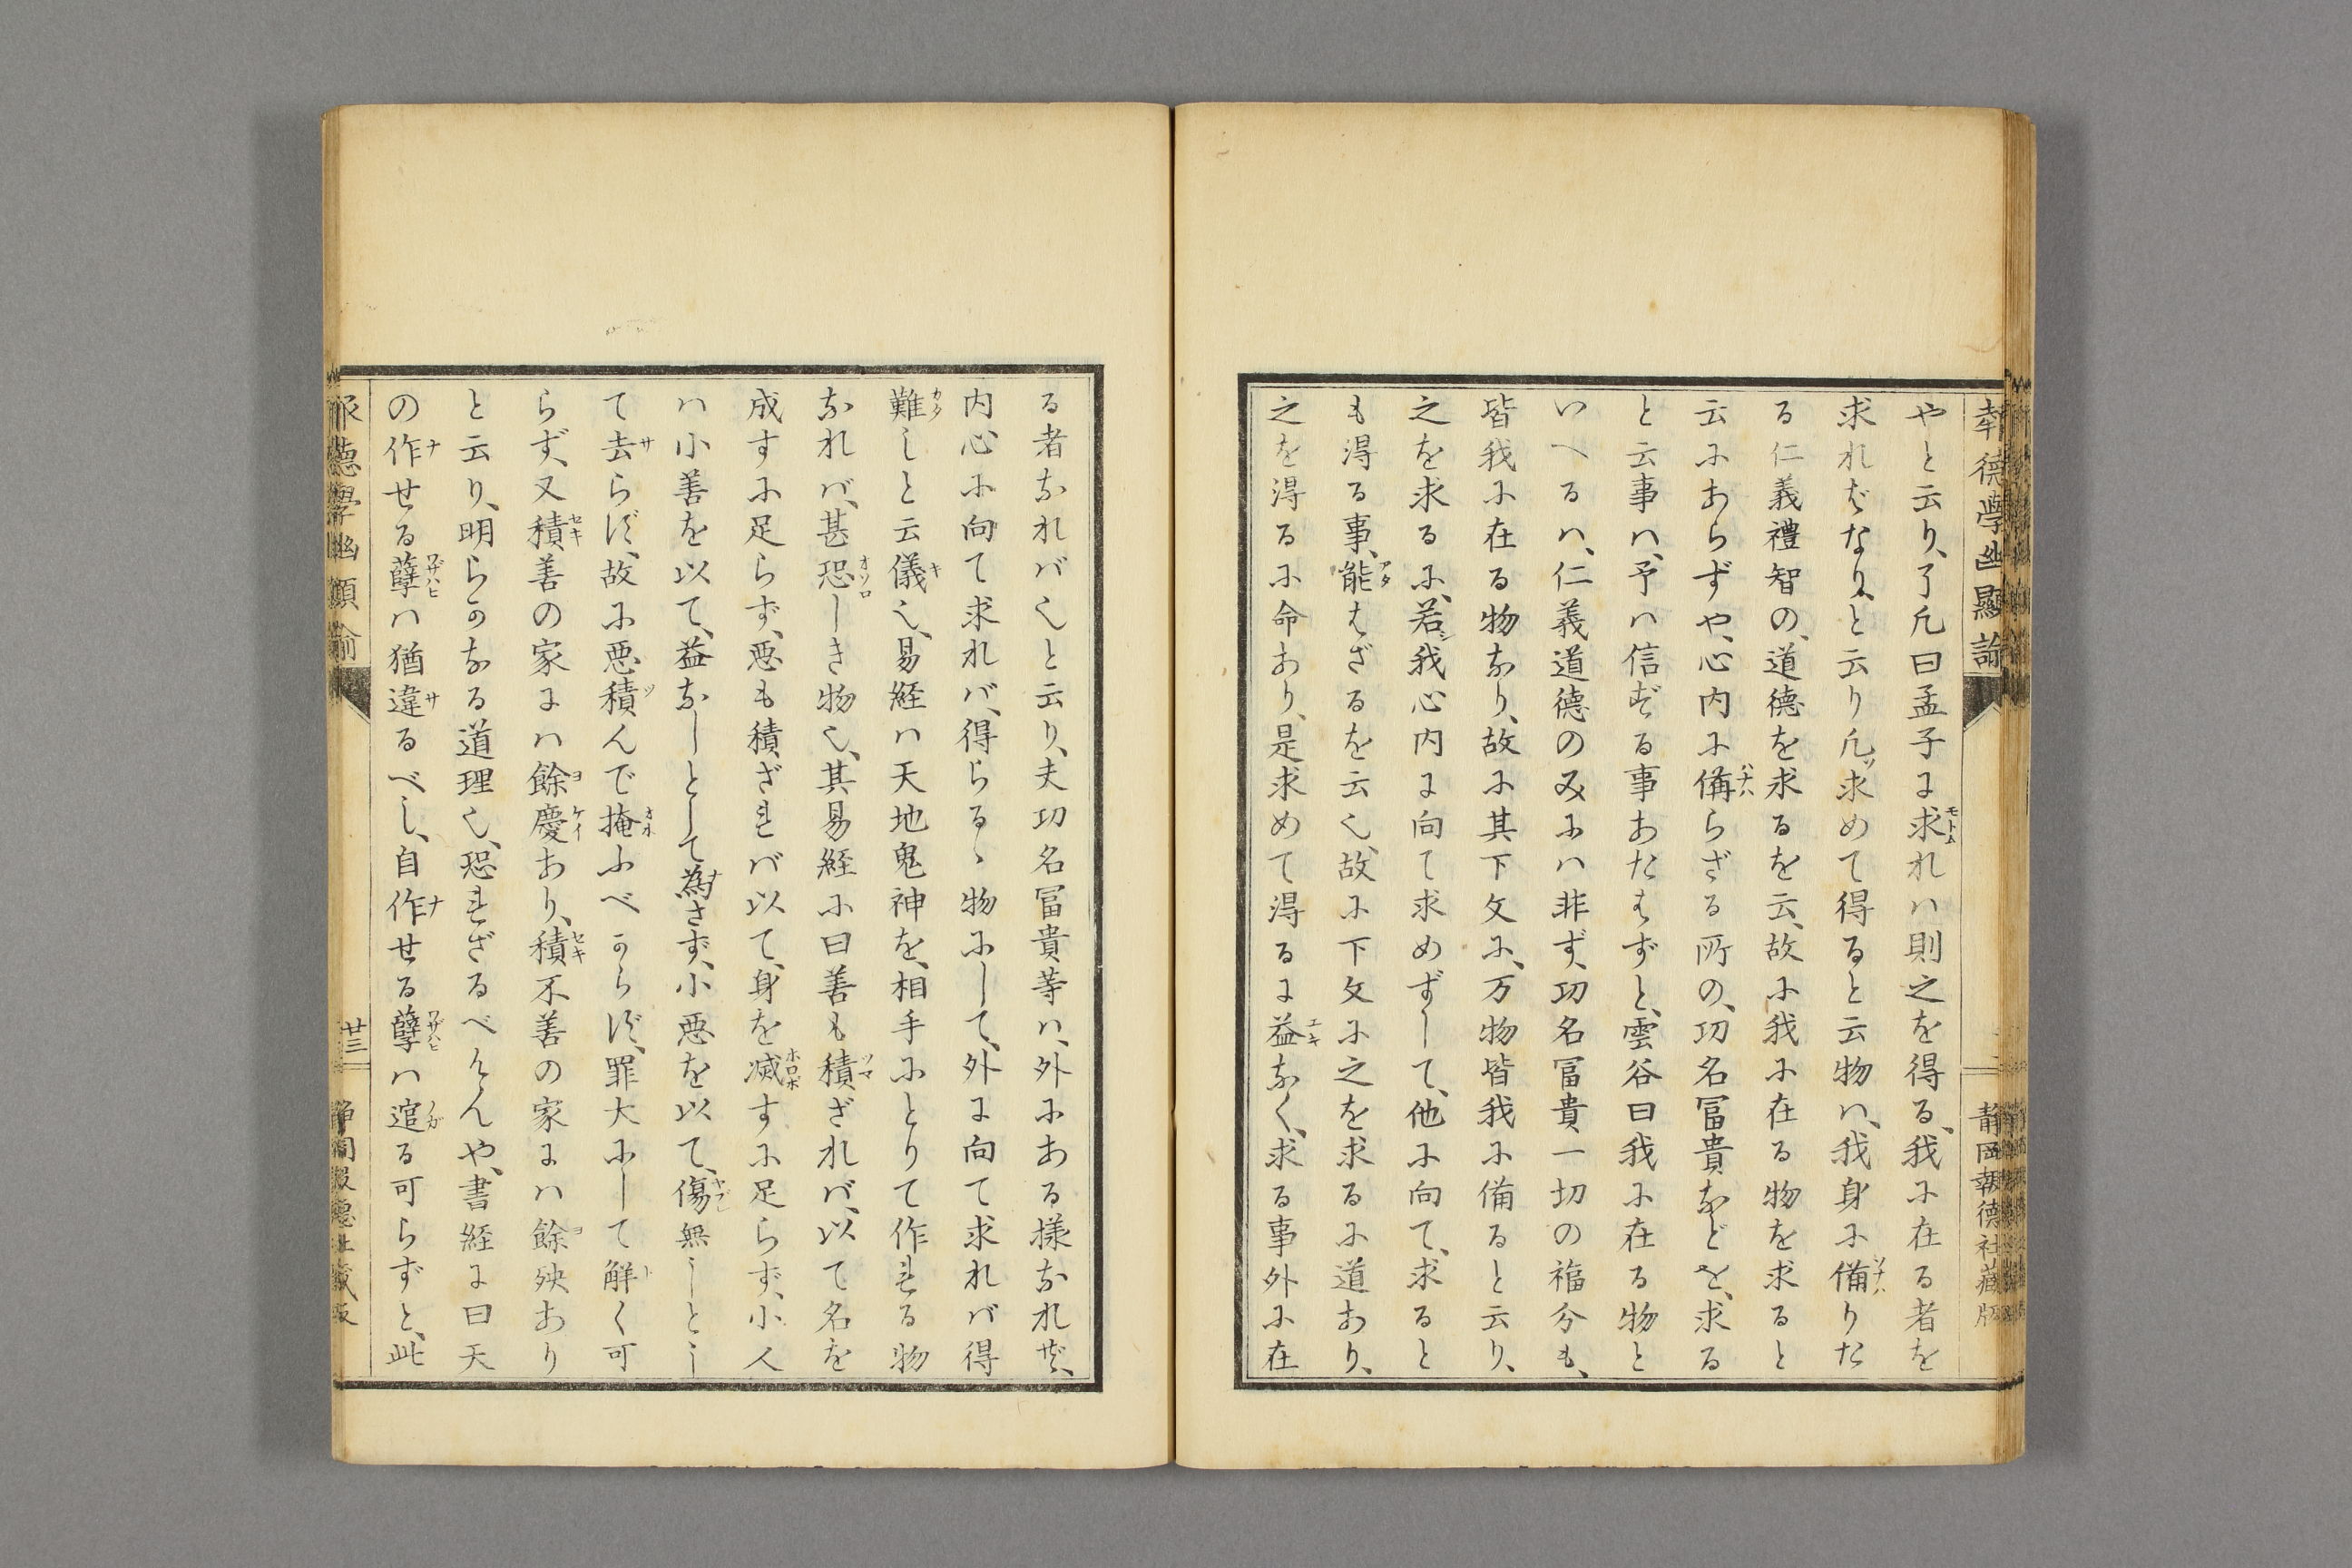 報德學幽顯諭
靜岡報德社藏版
やと云り、了凡曰孟子に求れハ則之を得る、我に在る者を
求ればなり、と云り凡求めて得ると云物ハ、我身に備りた
る仁義禮智の、道德を求るを云、故に我に在る物を求ると
云にあらずや、心内に備らざる所の、功名冨貴などを、求る
と云事ハ、予ハ信ずる事あたはずと、雲谷曰我に在る物と
いへるハ、仁義道德のみにハ非ず、功名冨貴一切の福分も、
皆我に在る物なり、故に其下文に、万物皆我に備ると云り、
之を求るに、若我心内に向て求めずして、他に向て、求ると
も得る事、能はざるを云也、故に下文に之を求るに道あり、
之を得るに命あり、是求めて得るに益なく、求る事外に在
る者なれば也と云り、夫功名冨貴等ハ、外にある様なれど、
内心に向て求れバ、得らるゝ物にして、外に向て求れバ得
難しと云儀也、易経ハ天地鬼神を、相手にとりて作れる物
なれバ、甚恐しき物也、其易経に曰善も積ざれバ、以て名を
成すに足らず、悪も積ざれバ以て、身を滅すに足らず、小人
ハ小善を以て、益なしとして為さず、小悪を以て、傷無しとし
て去らず、故に悪積んで掩ふべからず、罪大にして解く可
らず、又積善の家にハ餘慶あり、積不善の家にハ餘殃あり
と云り、明らかなる道理也、恐れざるべけんや、書経に曰天
の作せる孽ハ猶違るべし、自作せる孽ハ逭る可らずと、此
廿三